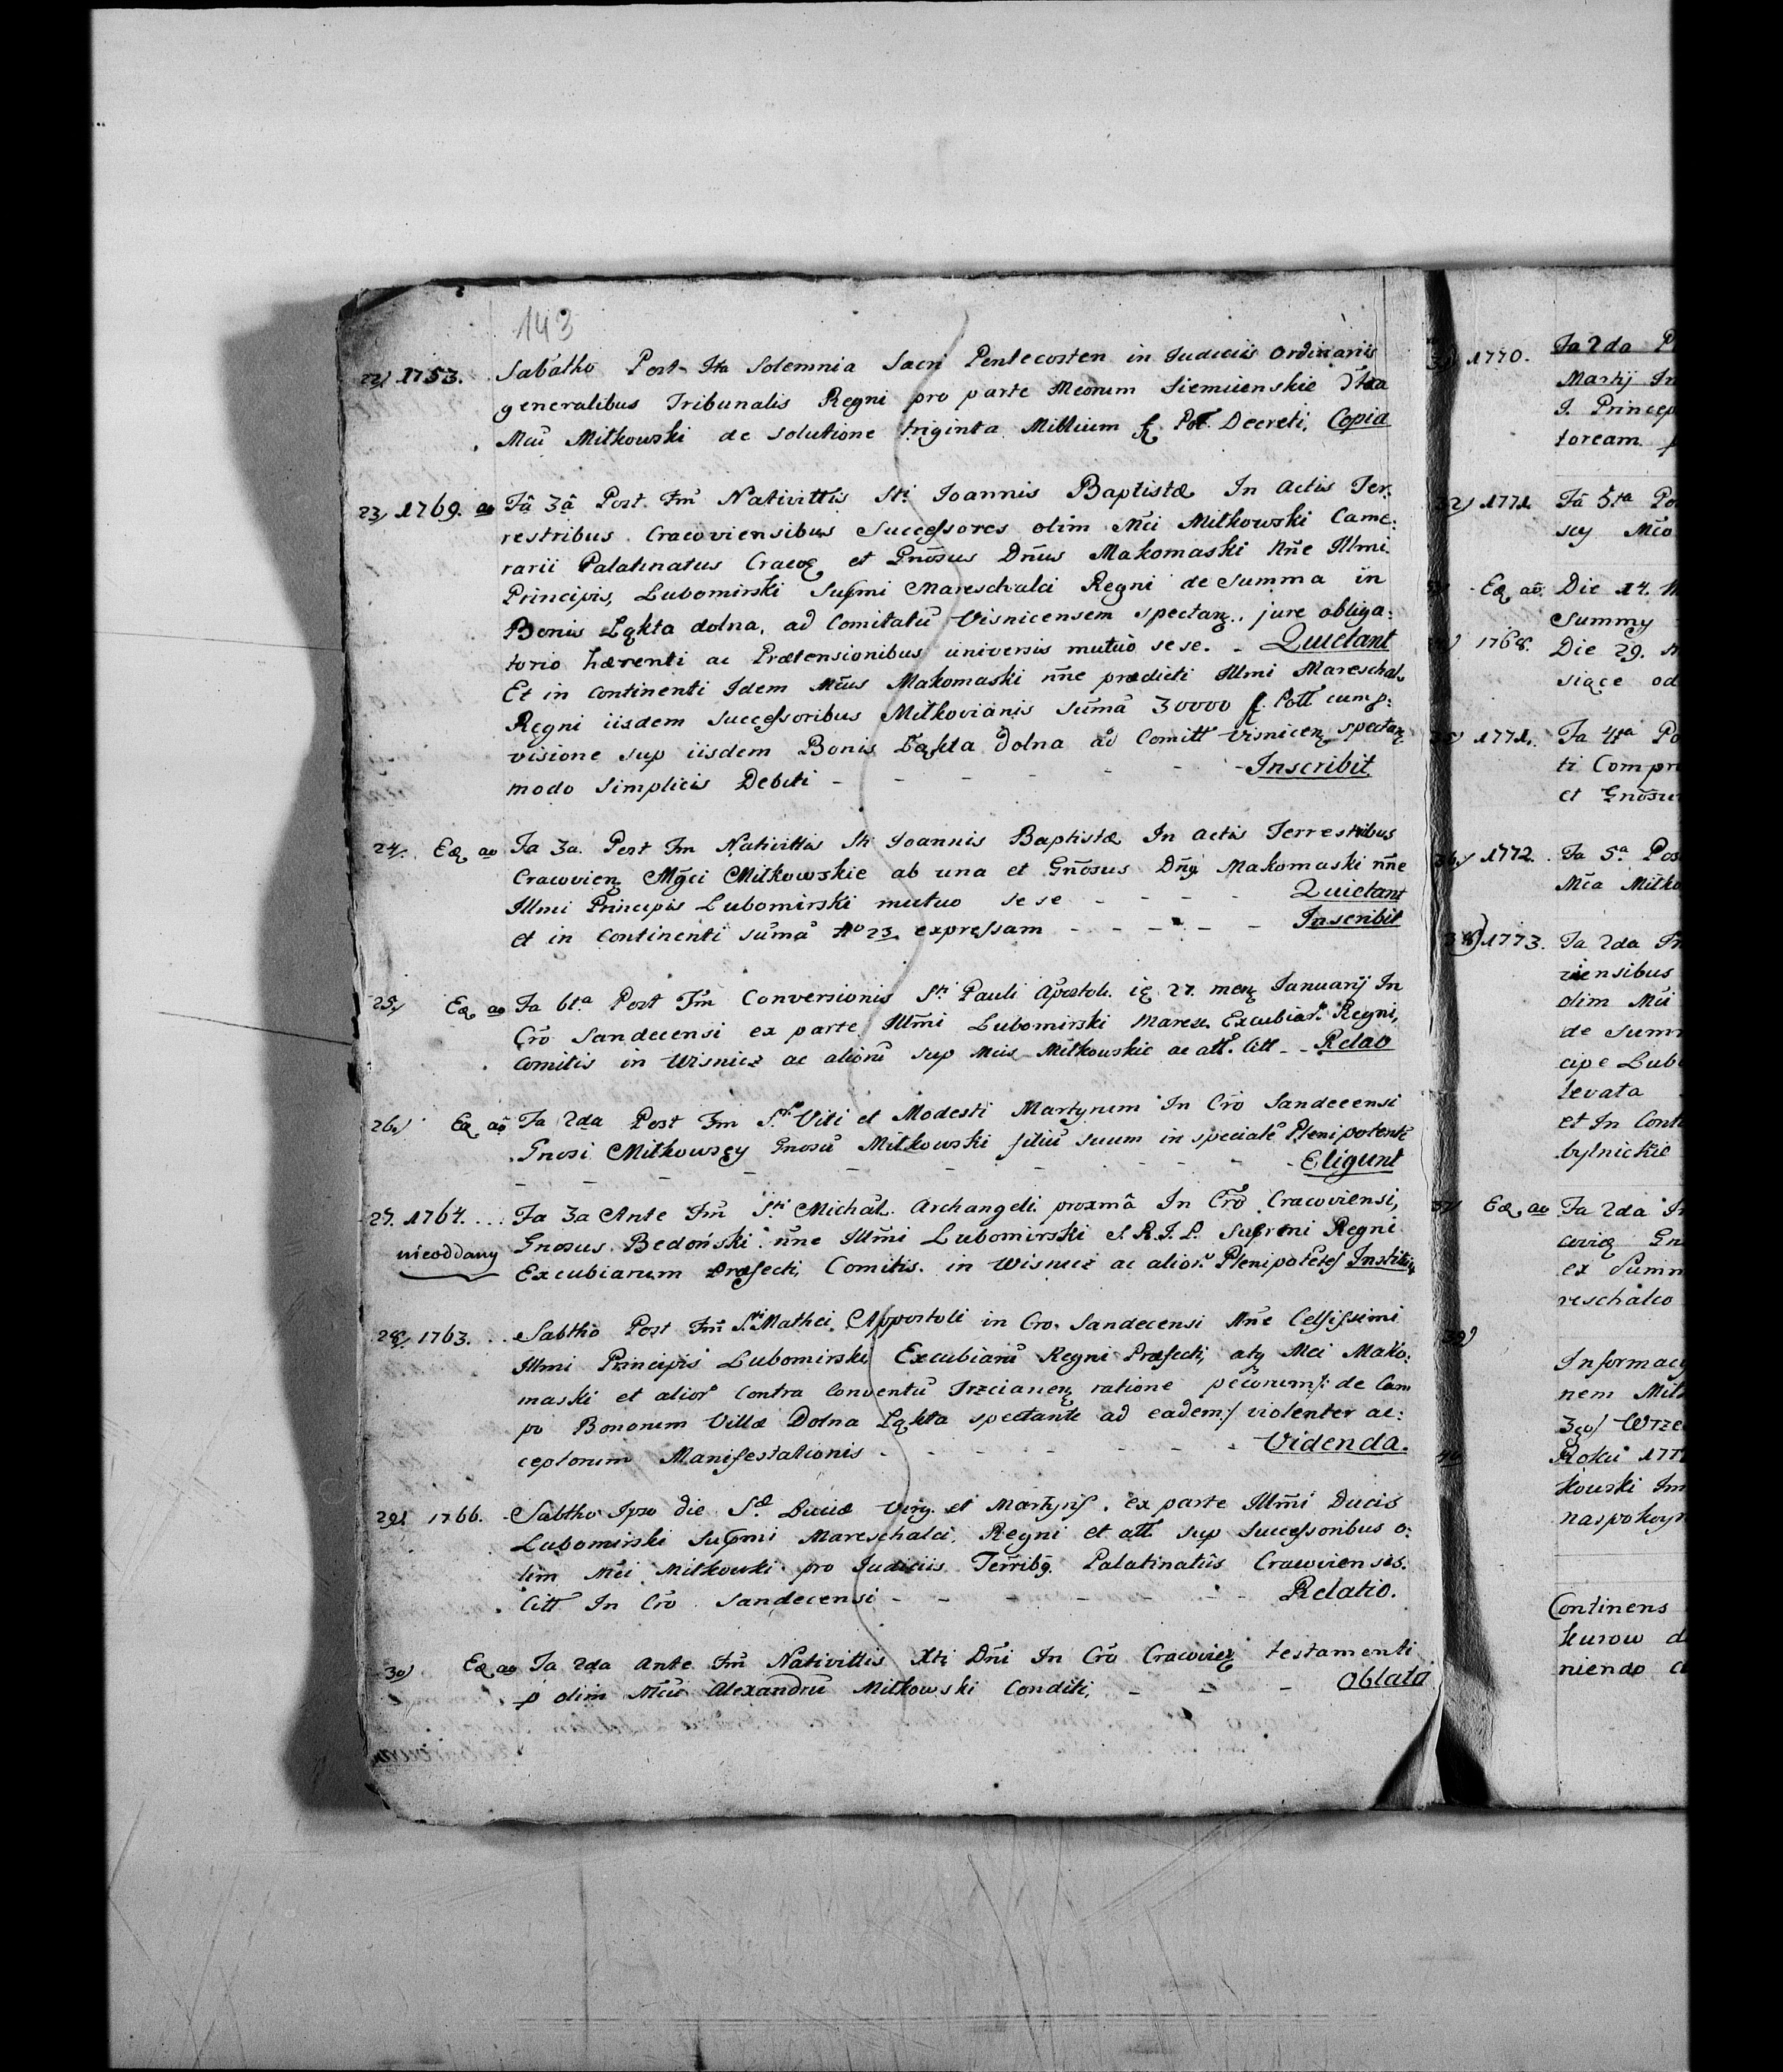 143
22) 1753. Sabatho Post Fta Solemnia Sacri Pentecosten in Judiciis ordinariis
generalibus Tribunalis Regni pro parte Mcorum Siemienskie
Mcũ Miłkowski de solutione triginta Millium Pol. Decreti. Copia
23) 1769. ao Fâ 3â Post Fm̃ Nativittis Sti Joannis Baptistæ In Actis Ter:
restribus Cracoviensibus Successores olim Mci Miłkowski Came:
rarii Palatinatus Cracoę et Gnõsus Dñus Makomaski Nñe Illmi
Principis, Lubomirski Supmi Mareschalci Regni de Summa in
Bonis Łąkta dolna, ad Comitatũ Visnicensem spectanz., jure obliga:
torio hærenti ac Prætensionibus universis mutuò se se. - Quietant
Et in continenti Idem Mcũs Makomaski nñe prædicti Illmi Mareschal.
Regni iisdem successoribus Miłkovianis sum̃ã 30000 f. Poll cum p:
visione sup iisdem Bonis Łąkta Dolna ad Comitt Visnicenz spectanz
modo Simplicis Debiti - - - - - - - Inscribit
24). Eæ ao Fa 3a Post Fm Nativittis Sti Joannis Baptistæ In Actis Terrestribus
Cracovienz Mg̃ci Miłkowskie ab una et Gnõsus Dñg Makomaski nñe
Illmi Principis Lubomirski mutuo se se - - - - Quietant
et in continenti sum̃ã No 23 expressam - - - - - Inscribit
25) Eæ ao Fa 6ta Post Fm̃ Conversionis Sti Pauli Apostoli. ię 27. menz Januarij In
Crõ Sandecensi ex parte Illm̃i Lubomirski Maresz. Excubiar. Regni,
Comitis in Wisnicz ac aliorũ sup Mcis Miłkowskie ac att. Citt - - Relao
26.) Eæ aõ Fa 2da Post Fm Stor Viti et Modesti Martyrum In Crõ Sandecensi
Gnosi Miłkowscy Gnosũ Miłkowski filiũ suum in specialẽ Plenipotentẽ
- - - - - - - - - Eligunt
27. 1764. ... Fa 3a Ante Fm̃ Sti Michał. Archangeli proxmâ In Crõ Cracoviensi,
nieoddany Gnosus Bedoński nñe Illm̃i Lubomirski S. R. I. P. Supremi Regni
Excubiarum Præfecti, Comitis. in Wisnicz ac alior. Instituit
28) 1763. .. Sabtho Post Fm̃ Sti Mathei Appostoli in Cro. Sandecensi Nñe Celsissimi
Illmi Principis Lubomirski Excubiarũ Regni Præfecti, atq Mci Mako:
maski et alior. contra Conventũ Trzcianenz ratione pecorum /: de Cam
po Bonorum Villæ Dolna Łąkta spectante ad eadem :/ violenter ac:
ceptorum Manifestationis - - - - - - - Videnda.
29). 1766. Sabtho Ipso die Sæ Luciæ Virg. et Martyris. ex parte Illm̃i Ducis
Lubomirski Supmi Mareschalci. Regni et att sup successoribus o:
lim Mci Miłkowski pro Judiciis Terribq. Palatinatûs Cracovienses.
Citt In Crõ Sandecensi - - - - - - Relatio.
30) Eæ ao Fa 2da ante Fm̃ Nativittis Xti Dñi In Crõ Cracovienz testamenti
p olim Mcũ Alexandrũ Miłkowski Conditi, - - - Oblata
31) 1770. Fa 2da P
Martij In
J. Princep
toream
32) 1771. Fâ 5ta Po
scy Mco
Eæ aõ. Die 14.
Summy
1768. Die 29.
siące od
1771. Fa 4ta Po
ti Compr
et Gnõsu
36) 1772. Fa 5a Pos
Mca Miłko
38) 1773. Fa 2da
ziensibus
olim Mci
de Summ
cipe Lub
levata
et In Conti
bylnickie
37) Eæ ao Fa 2da
coviæ Gn
ex Summ
reschalco
39)
Informacy
nem Miłk
3go/ Wrze
40 Roku 177
kowski Im
naspokoyn
Continens
kurow d
niendo